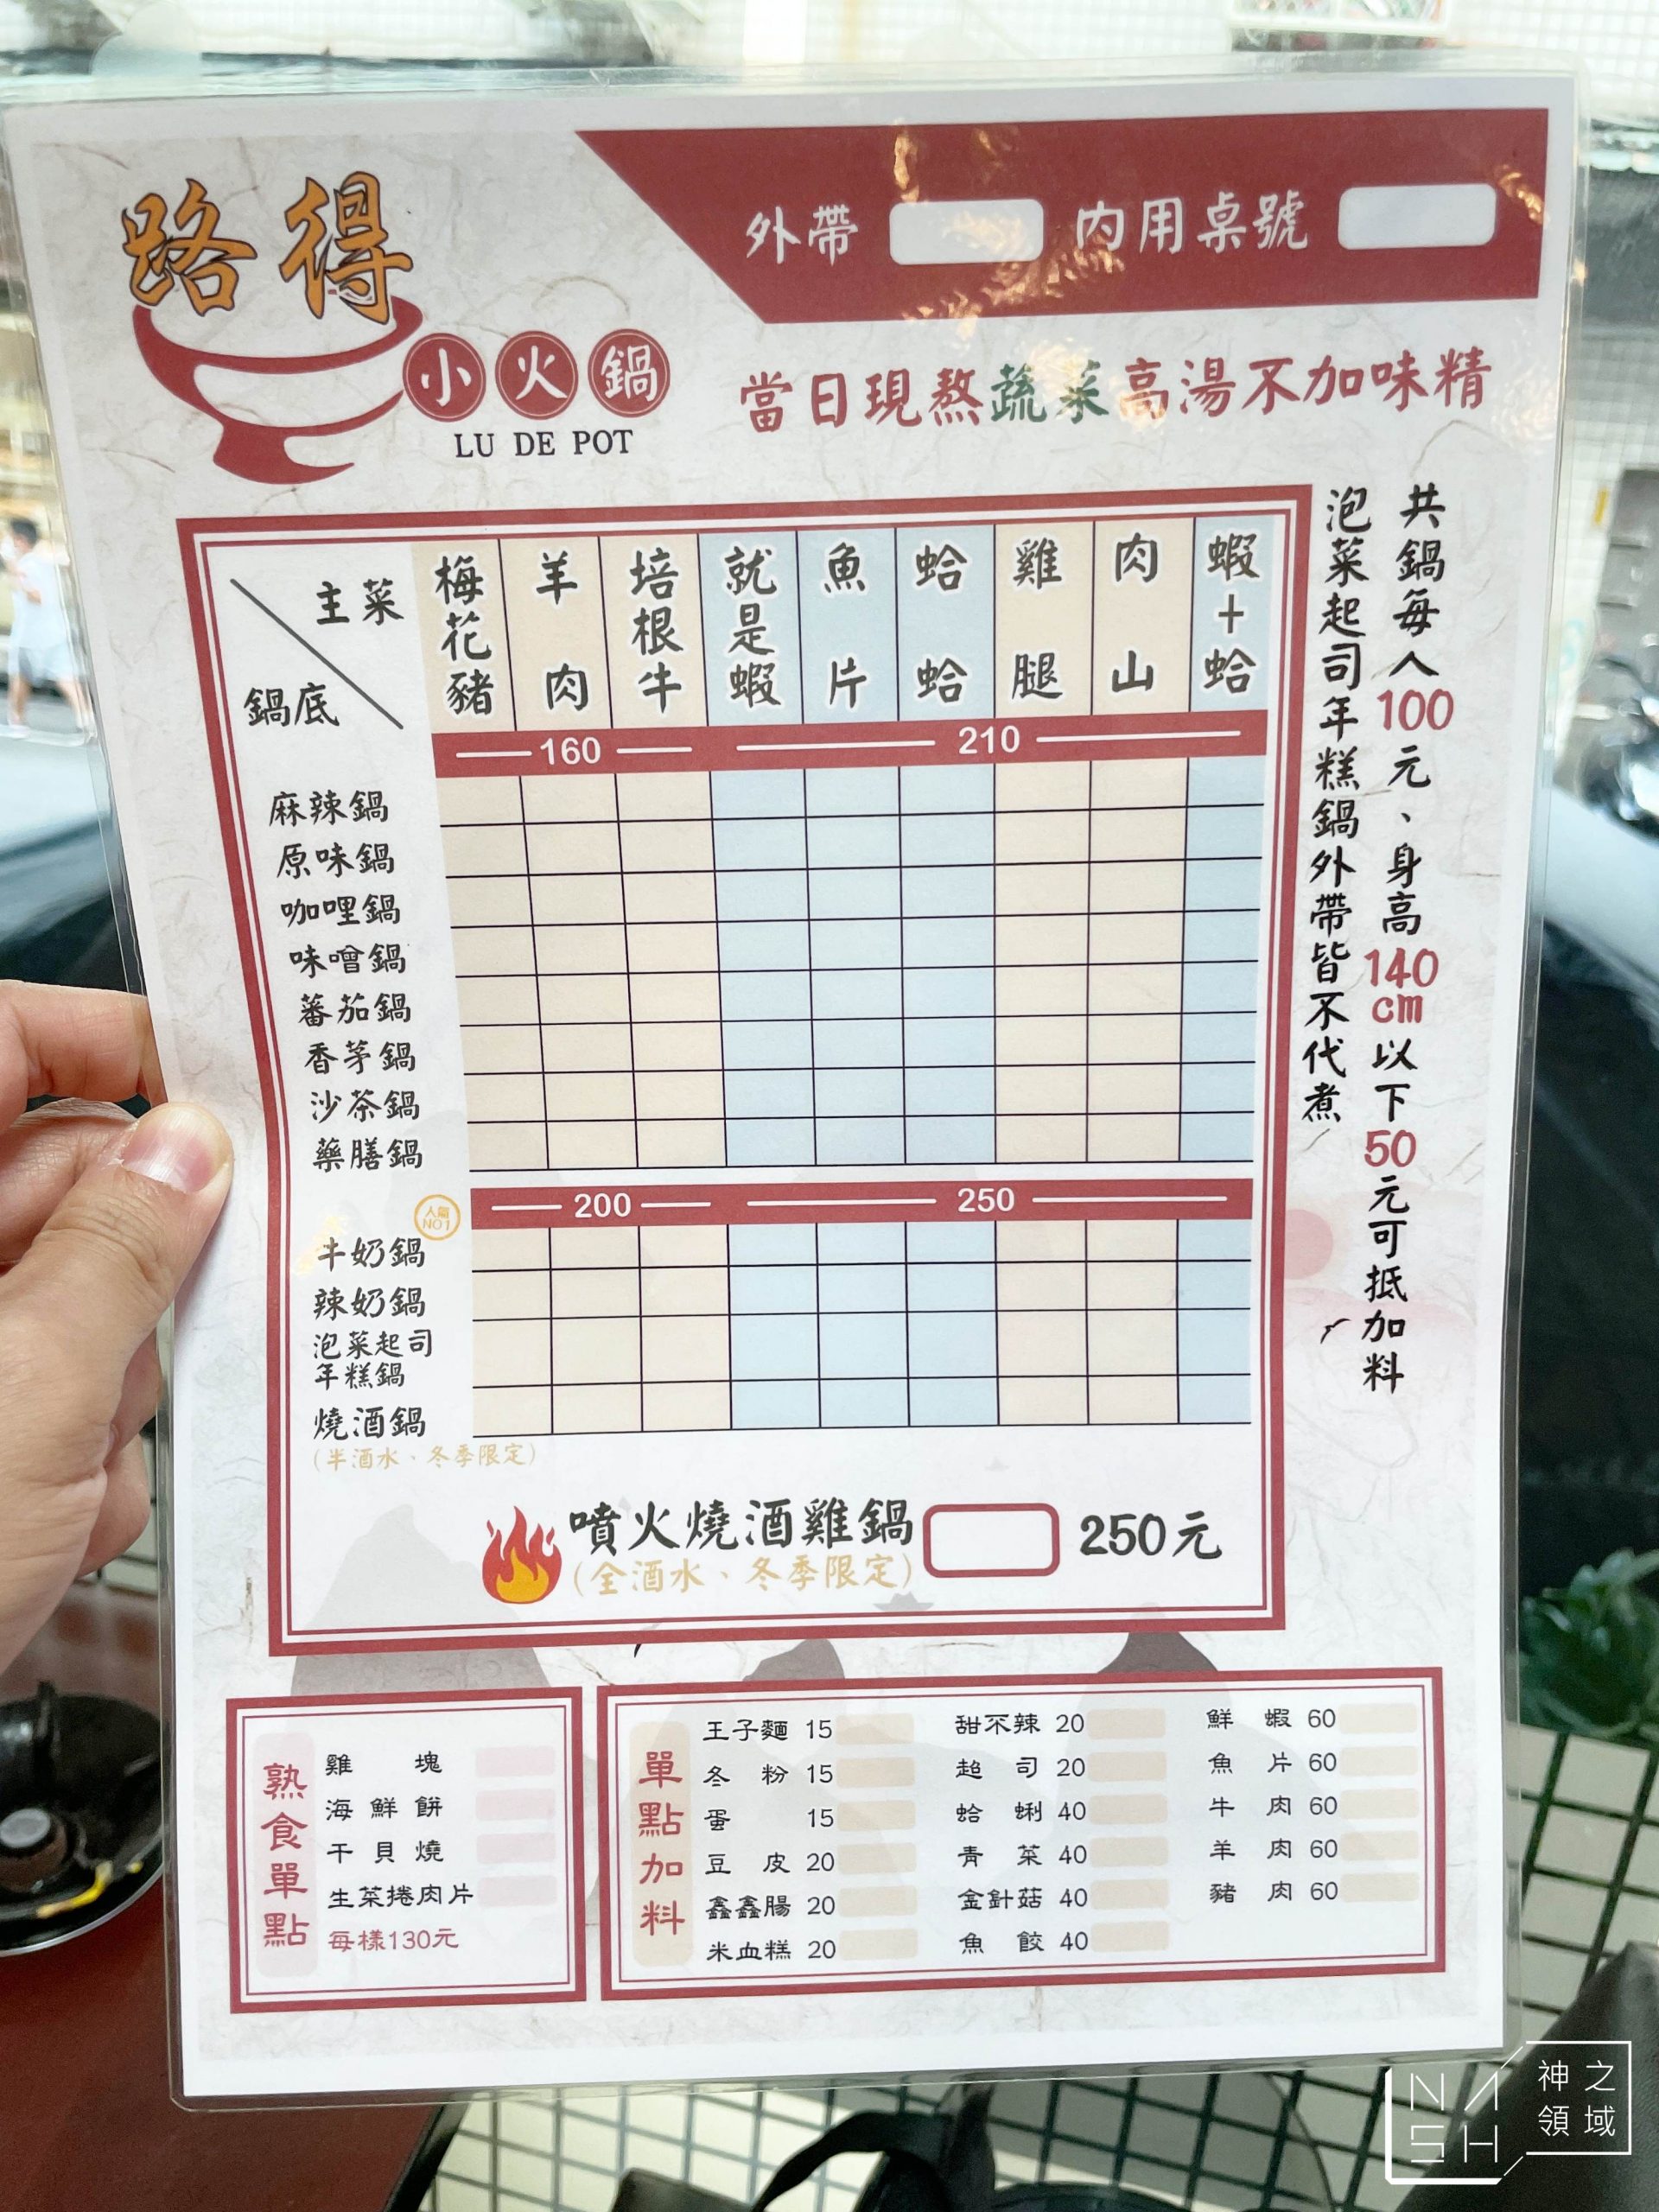 路得
小火鍋
LU DE POT
外帶 內用桌號
當日現熬蔬菜高湯不加味精
共鍋每人100元、身高140cm以下50元可抵加料
泡菜起司年糕鍋外帶皆不代煮
主菜 梅花豬 羊肉 培根牛 就是蝦 魚片 蛤蛤 雞腿 肉山 蝦+蛤
鍋底
160 210
麻辣鍋
原味鍋
咖哩鍋
味噌鍋
蕃茄鍋
香茅鍋
沙茶鍋
藥膳鍋
200 250
人氣
NO1
牛奶鍋
辣奶鍋
泡菜起司
年糕鍋
燒酒鍋
(半酒水、冬季限定)
噴火燒酒雞鍋 250元
(全酒水、冬季限定)
熟食單點
雞塊
海鮮餅
干貝燒
生菜捲肉片
每樣130元
單點加料
王子麵 15 甜不辣 20 鮮蝦 60
冬粉 15 起司 20 魚片 60
蛋 15 蛤蜊 40 牛肉 60
豆皮 20 青菜 40 羊肉 60
鑫鑫腸 20 金針菇 40 豬肉 60
米血糕 20 魚餃 40
NASH
神之
領域